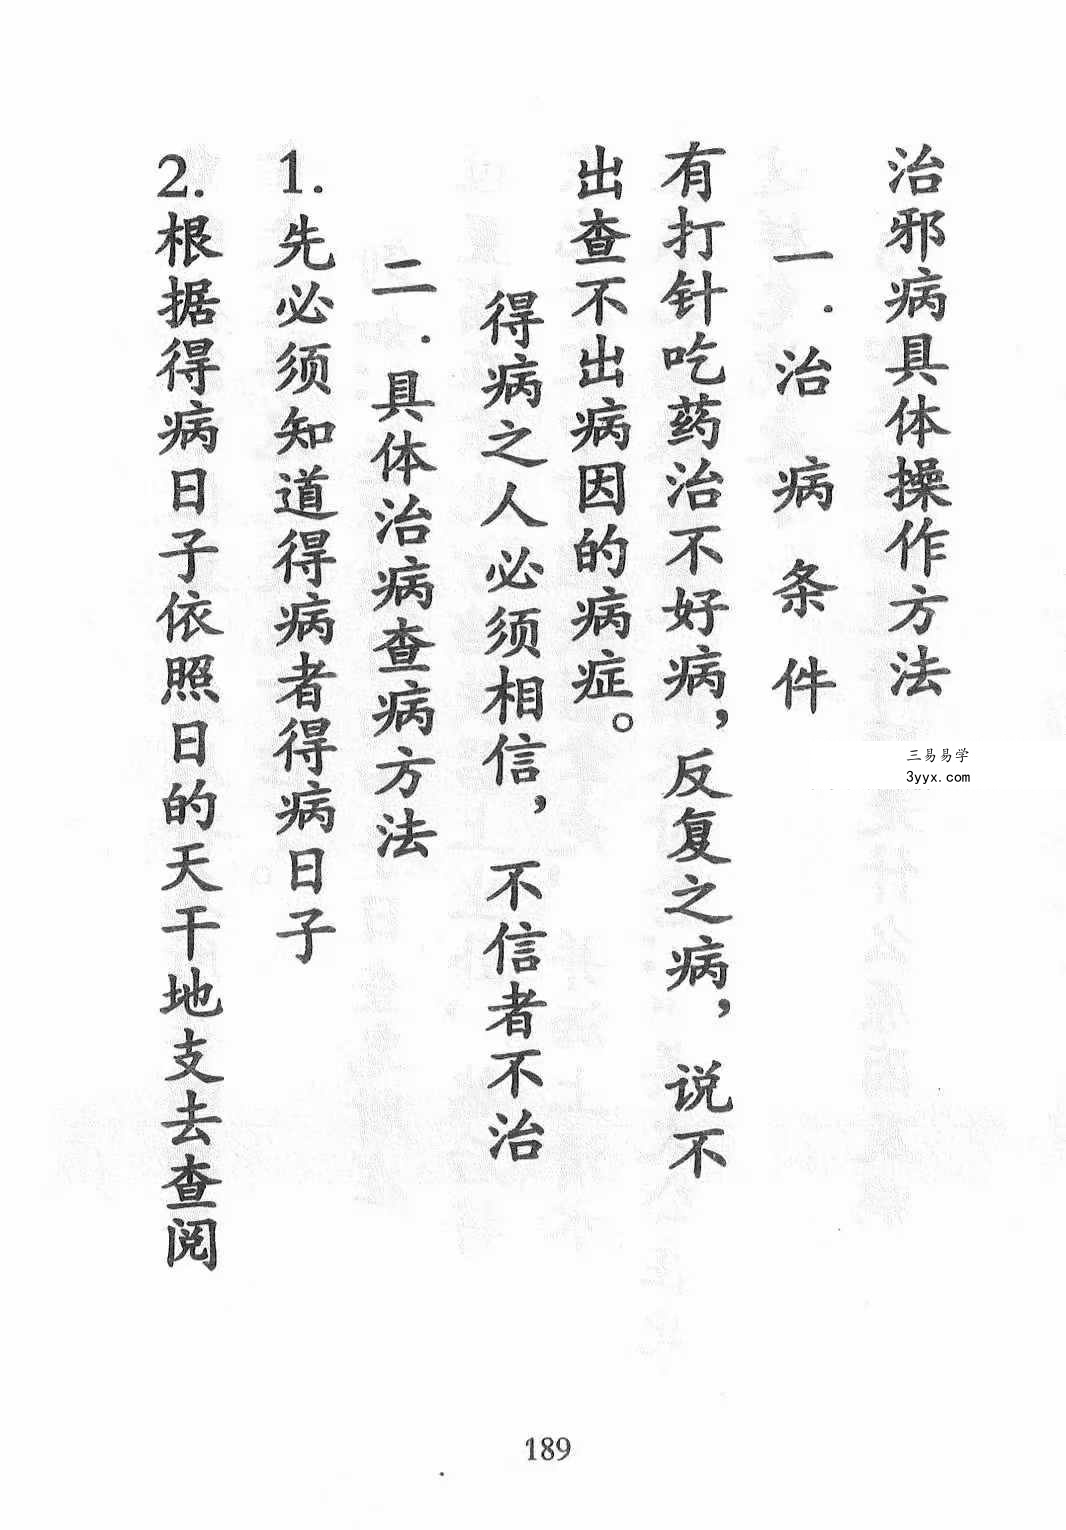 治邪病具体操作方法
一.治病条件
有打针吃药治不好病，反复之病，说不
出查不出病因的病症。
得病之人必须相信，不信者不治
二.具体治病查病方法
1.先必须知道得病者得病日子
2.根据得病日子依照日的天干地支去查阅
三易易学
3yyx.com
189